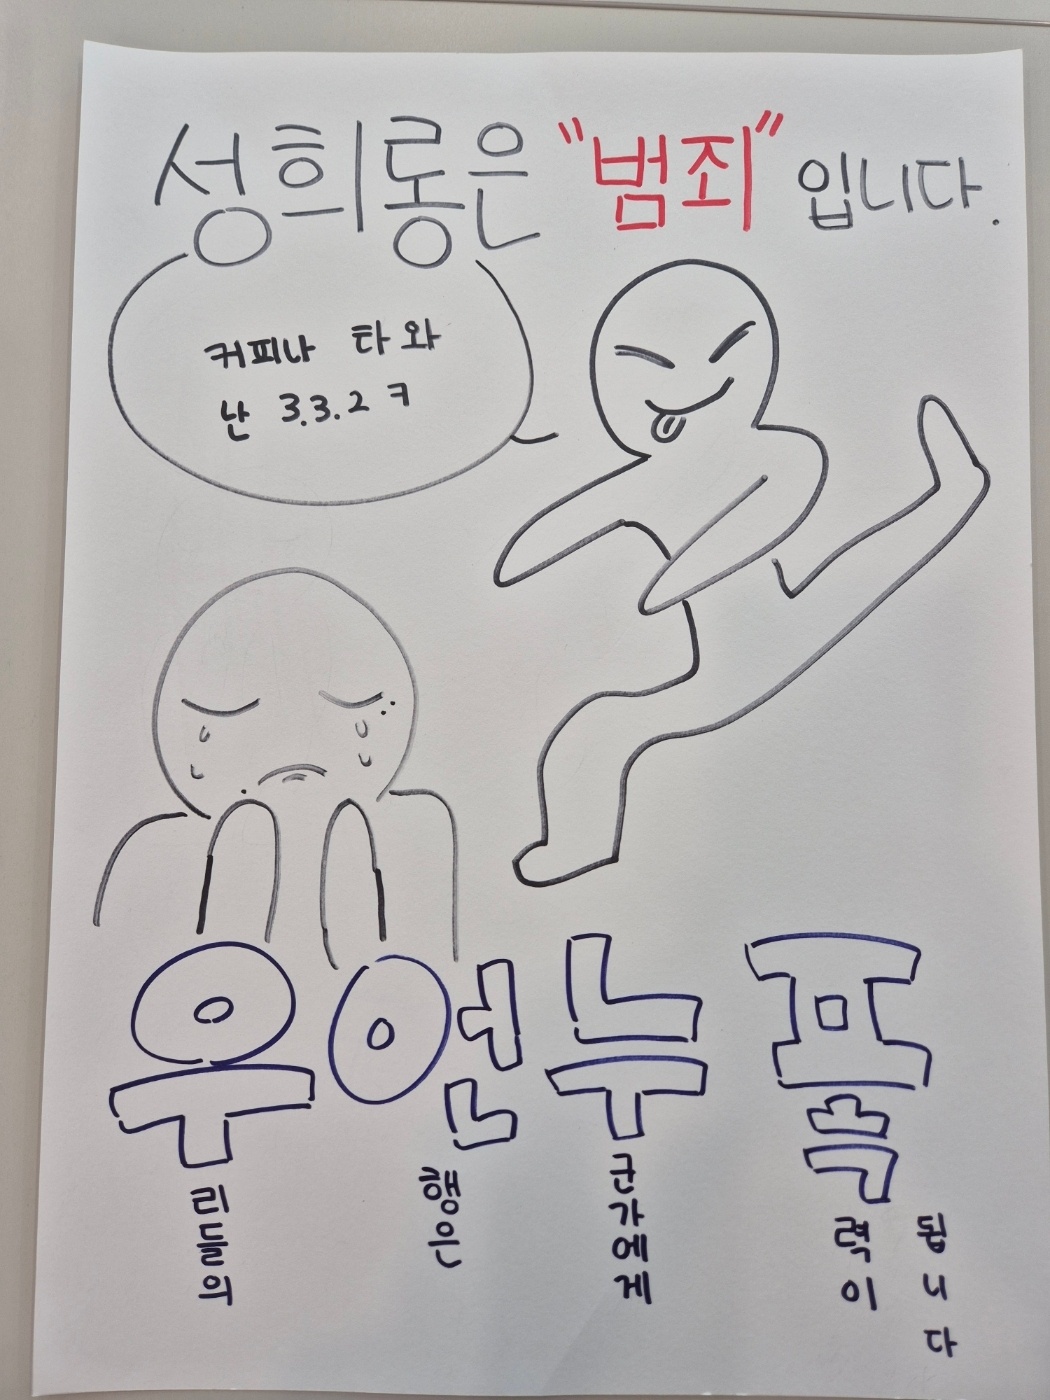 성희롱은 "범죄" 입니다.
커피나 타와
난 3.3.2 ㅋ
우리들의
언행은
누군가에게
폭력이
됩니다